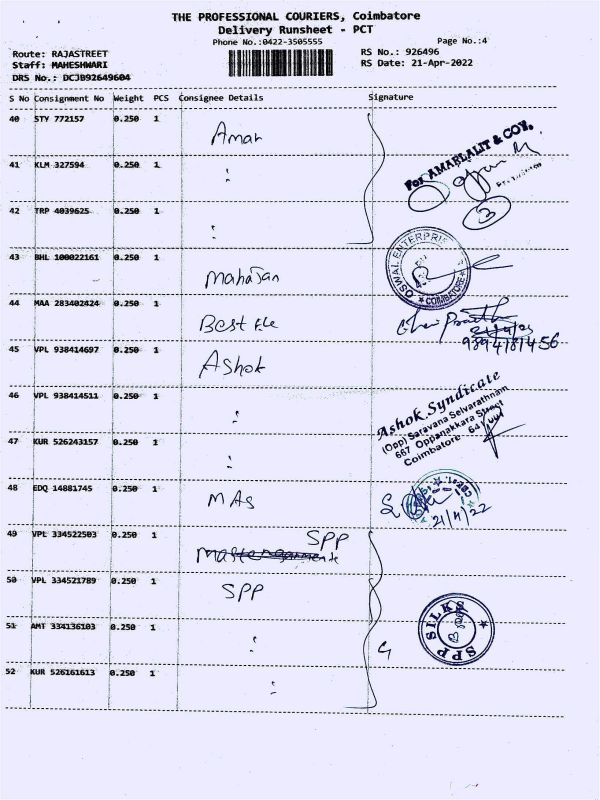 THE PROFESSIONAL COURIERS, Coimbatore
Delivery Runsheet - PCT
Phone No.:0422-3505555
Page No.:4
Route: RAJASTREET
RS No.: 926496
Staff: MAHESHWARI
RS Date: 21-Apr-2022
DRS No.: DCJB92649604
S No Consignment No Weight PCS Consignee Details Signature
40 STY 772157 0.250 1 Amar
41 KLM 327594 0.250 1 :
For AMARLALIT & COY.
42 TRP 4039625 0.250 1 :
3
43 BHL 100022161 0.250 1 Mahajan
OSWAL ENTERPRISES
★ COIMBATORE ★
44 MAA 283402424 0.250 1 Best Ele
9394181456
45 VPL 938414697 0.250 1 Ashok
46 VPL 938414511 0.250 1 :
Ashok Syndicate
(Opp) Saravana Selvarathnam
667 Oppanakkara Street
Coimbatore
47 KUR 526243157 0.250 1 :
48 EDQ 14881745 0.250 1 MAS
21/4/22
49 VPL 334522503 0.250 1 SPP
50 VPL 334521789 0.250 1 SPP
51 AMT 334136103 0.250 1 :
4
SPP SILKS
★
52 KUR 526161613 0.250 1 :